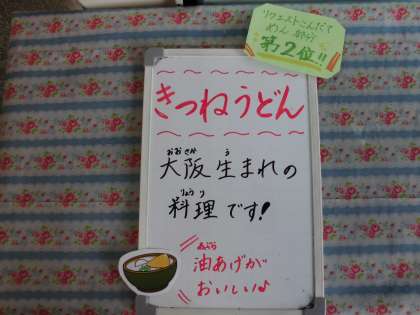 リクエストこんだて
めん部分
第2位!!
きつねうどん
大阪生まれの
料理です!
油あげが
おいしい♪